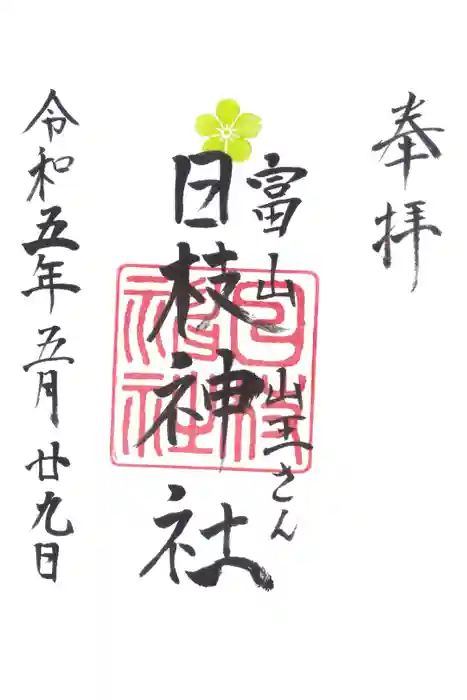 奉拝
富山 山王さん
日枝神社
日枝神社
令和五年五月廿九日